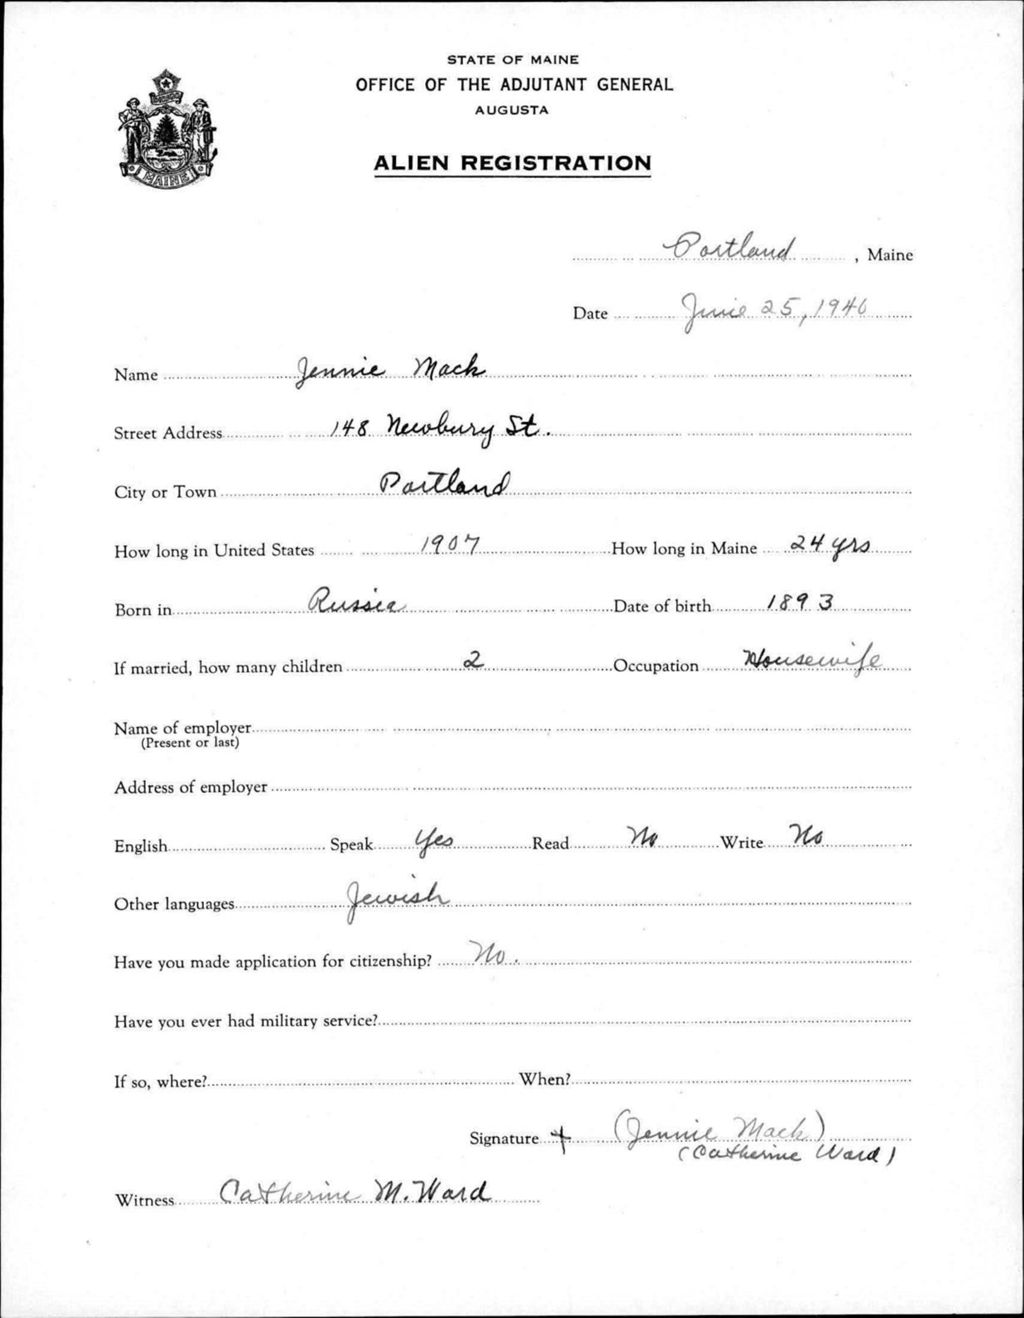 STATE OF MAINE
OFFICE OF THE ADJUTANT GENERAL
AUGUSTA
ALIEN REGISTRATION
MAINE
Portland, Maine
Date June 25, 1940
Name Jennie Mack
Street Address 148 Newbury St.
City or Town Portland
How long in United States 1907 How long in Maine 24 yrs
Born in Russia Date of birth 1893
If married, how many children 2 Occupation Housewife
Name of employer
(Present or last)
Address of employer
English Speak Yes Read No Write No
Other languages Jewish
Have you made application for citizenship? No.
Have you ever had military service?
If so, where? When?
Signature + (Jennie Mack)
(Catherine Ward)
Witness Catherine M. Ward